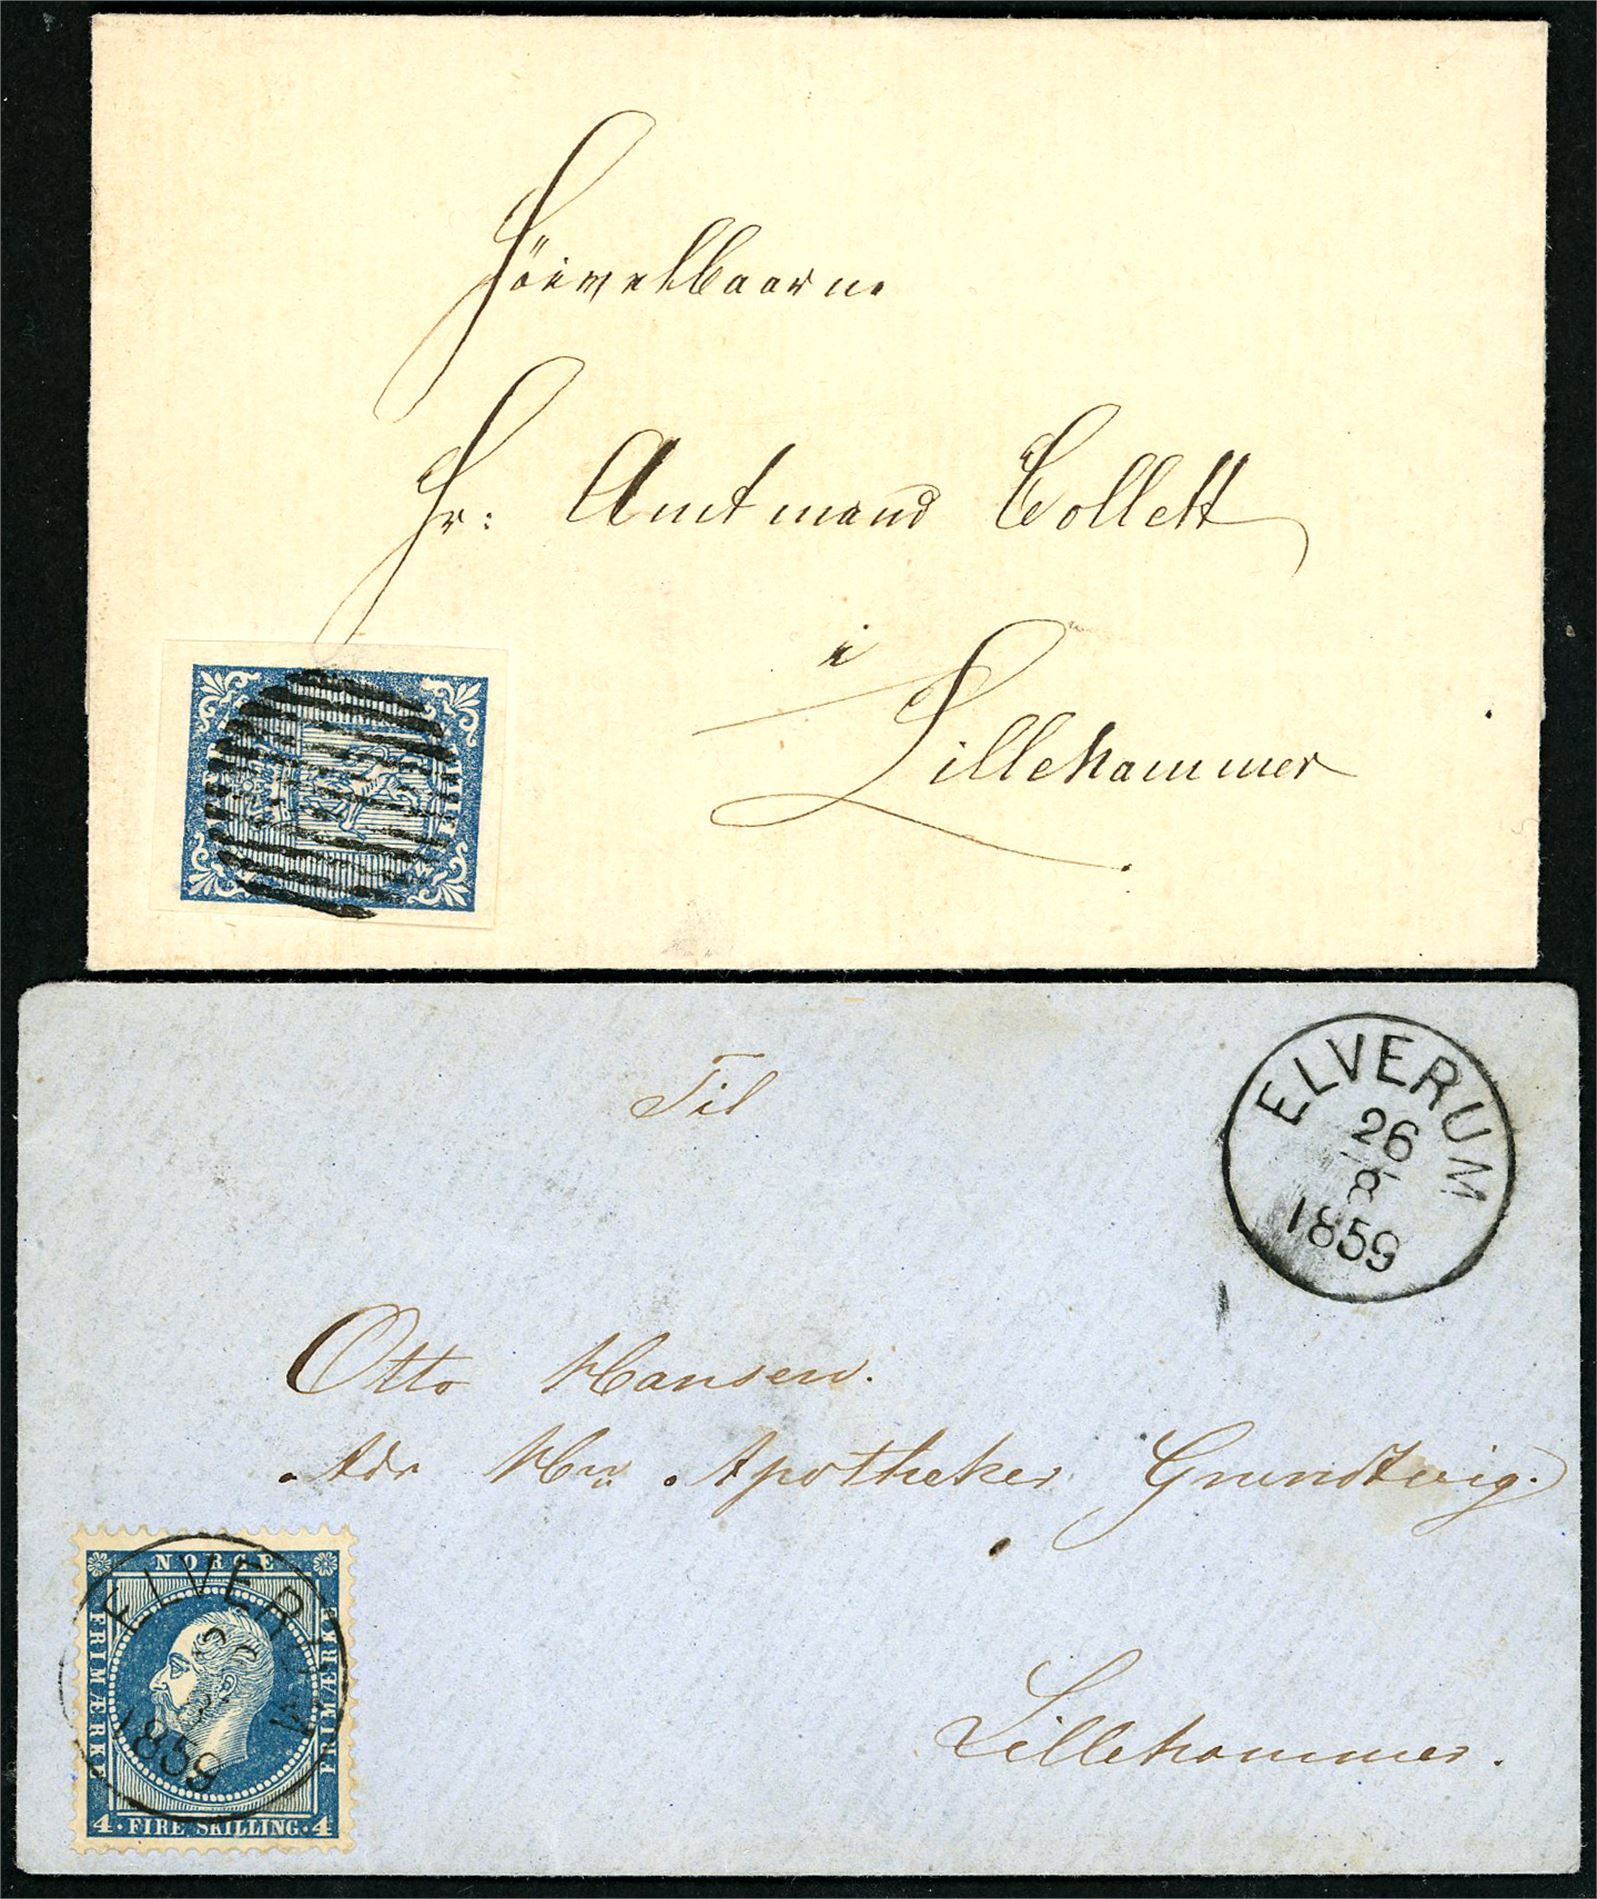 Höivelbaarne
Hr: Amtmand Collett
i
Lillehammer
Til
ELVERUM
26
8
1859
Otto Hansen.
Adr Hrr. Apotheker Grundtvig.
Lillehammer.
NORGE
FRIMÆRKE
FRIMÆRKE
4 · FIRE SKILLING · 4
ELVERUM
1859